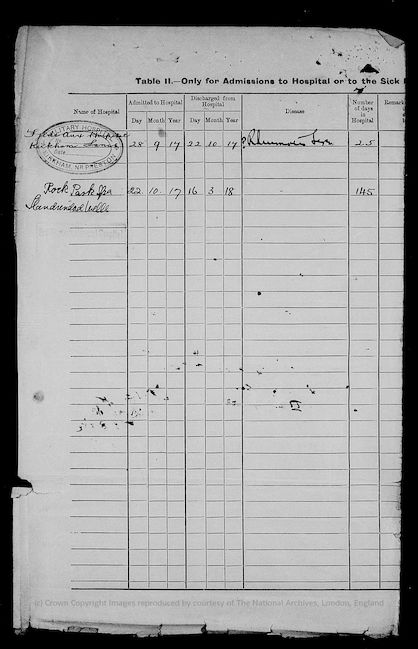 Table II.—Only for Admissions to Hospital or to the Sick
Name of Hospital
Admitted to Hospital
Discharged from Hospital
Disease
Number of days in Hospital
Remarks
Day Month Year Day Month Year
MILITARY HOSPITAL
KIRKHAM, NR PRESTON
28 9 17 22 10 17 25
Rock Park Spa 22 10 17 16 3 18 145
Llandrindod Wells
(c) Crown Copyright Images reproduced by courtesy of The National Archives, London, England